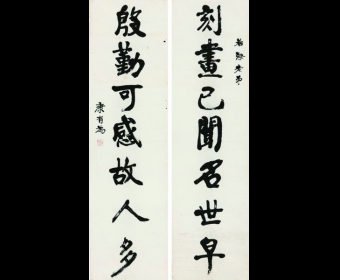 刻畫已聞名世早
殷勤可感故人多
康有為